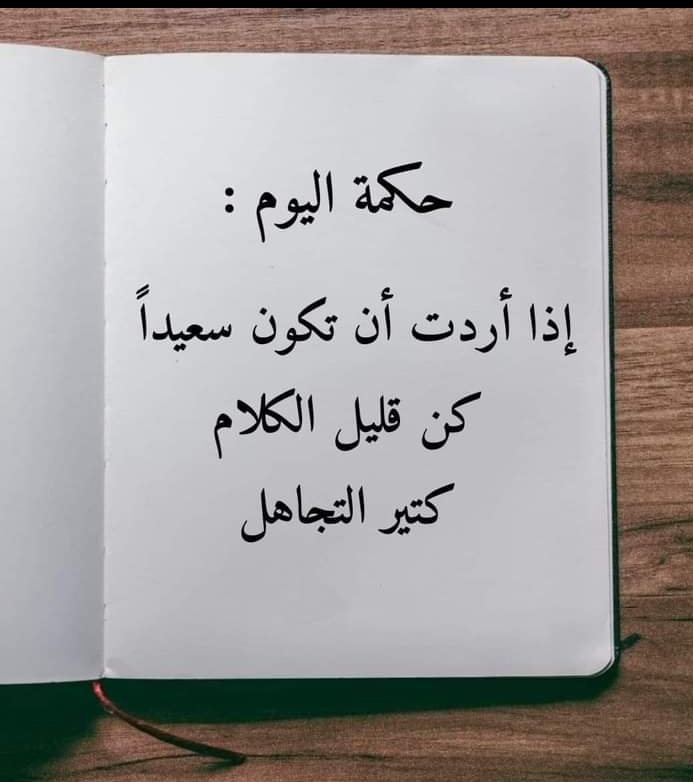 حكمة اليوم :
إذا أردت أن تكون سعيداً
كن قليل الكلام
كتير التجاهل